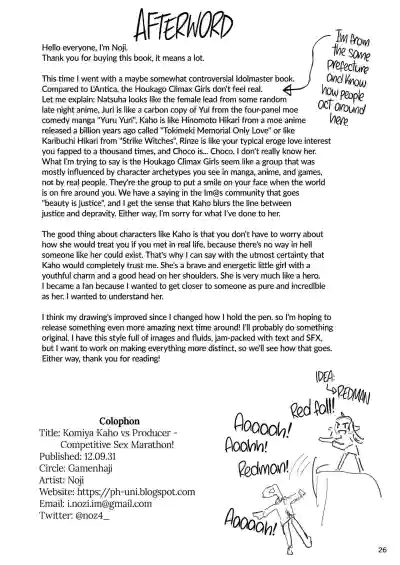 AFTERWORD
Hello everyone, I'm Noji.
Thank you for buying this book, it means a lot.
This time I went with a maybe somewhat controversial Idolmaster book.
Compared to L'Antica, the Houkago Climax Girls don't feel real.
Let me explain: Natsuha looks like the female lead from some random
late night anime, Juri is like a carbon copy of Yui from the four-panel moe
comedy manga "Yuru Yuri", Kaho is like Hinomoto Hikari from a moe anime
released a billion years ago called "Tokimeki Memorial Only Love" or like
Karibuchi Hikari from "Strike Witches", Rinze is like your typical eroge love interest
you fapped to a thousand times, and Choco is... Choco. I don't really know her.
What I'm trying to say is the Houkago Climax Girls seem like a group that was
mostly influenced by character archetypes you see in manga, anime, and games,
not by real people. They're the group to put a smile on your face when the world
is on fire around you. We have a saying in the Im@s community that goes
"beauty is justice", and I get the sense that Kaho blurs the line between
justice and depravity. Either way, I'm sorry for what I've done to her.
I'm from
the same
prefecture
and know
how people
act around
here
The good thing about characters like Kaho is that you don't have to worry about
how she would treat you if you met in real life, because there's no way in hell
someone like her could exist. That's why I can say with the utmost certainty that
Kaho would completely trust me. She's a brave and energetic little girl with a
youthful charm and a good head on her shoulders. She is very much like a hero.
I became a fan because I wanted to get closer to someone as pure and incredible
as her. I wanted to understand her.
I think my drawing's improved since I changed how I hold the pen. so I'm hoping to
release something even more amazing next time around! I'll probably do something
original. I have this style full of images and fluids, jam-packed with text and SFX,
but I want to work on making everything more distinct, so we'll see how that goes.
Either way, thank you for reading!
Colophon
Title: Komiya Kaho vs Producer -
Competitive Sex Marathon!
Published: 12.09.31
Circle: Gamenhaji
Artist: Noji
Website: https://ph-uni.blogspot.com
Email: i.nozi.im@gmail.com
Twitter: @noz4_
IDEA:
REDMAN
Red fall!
Aooooh!
Aoohh!
Redman!
Aooooh!
26